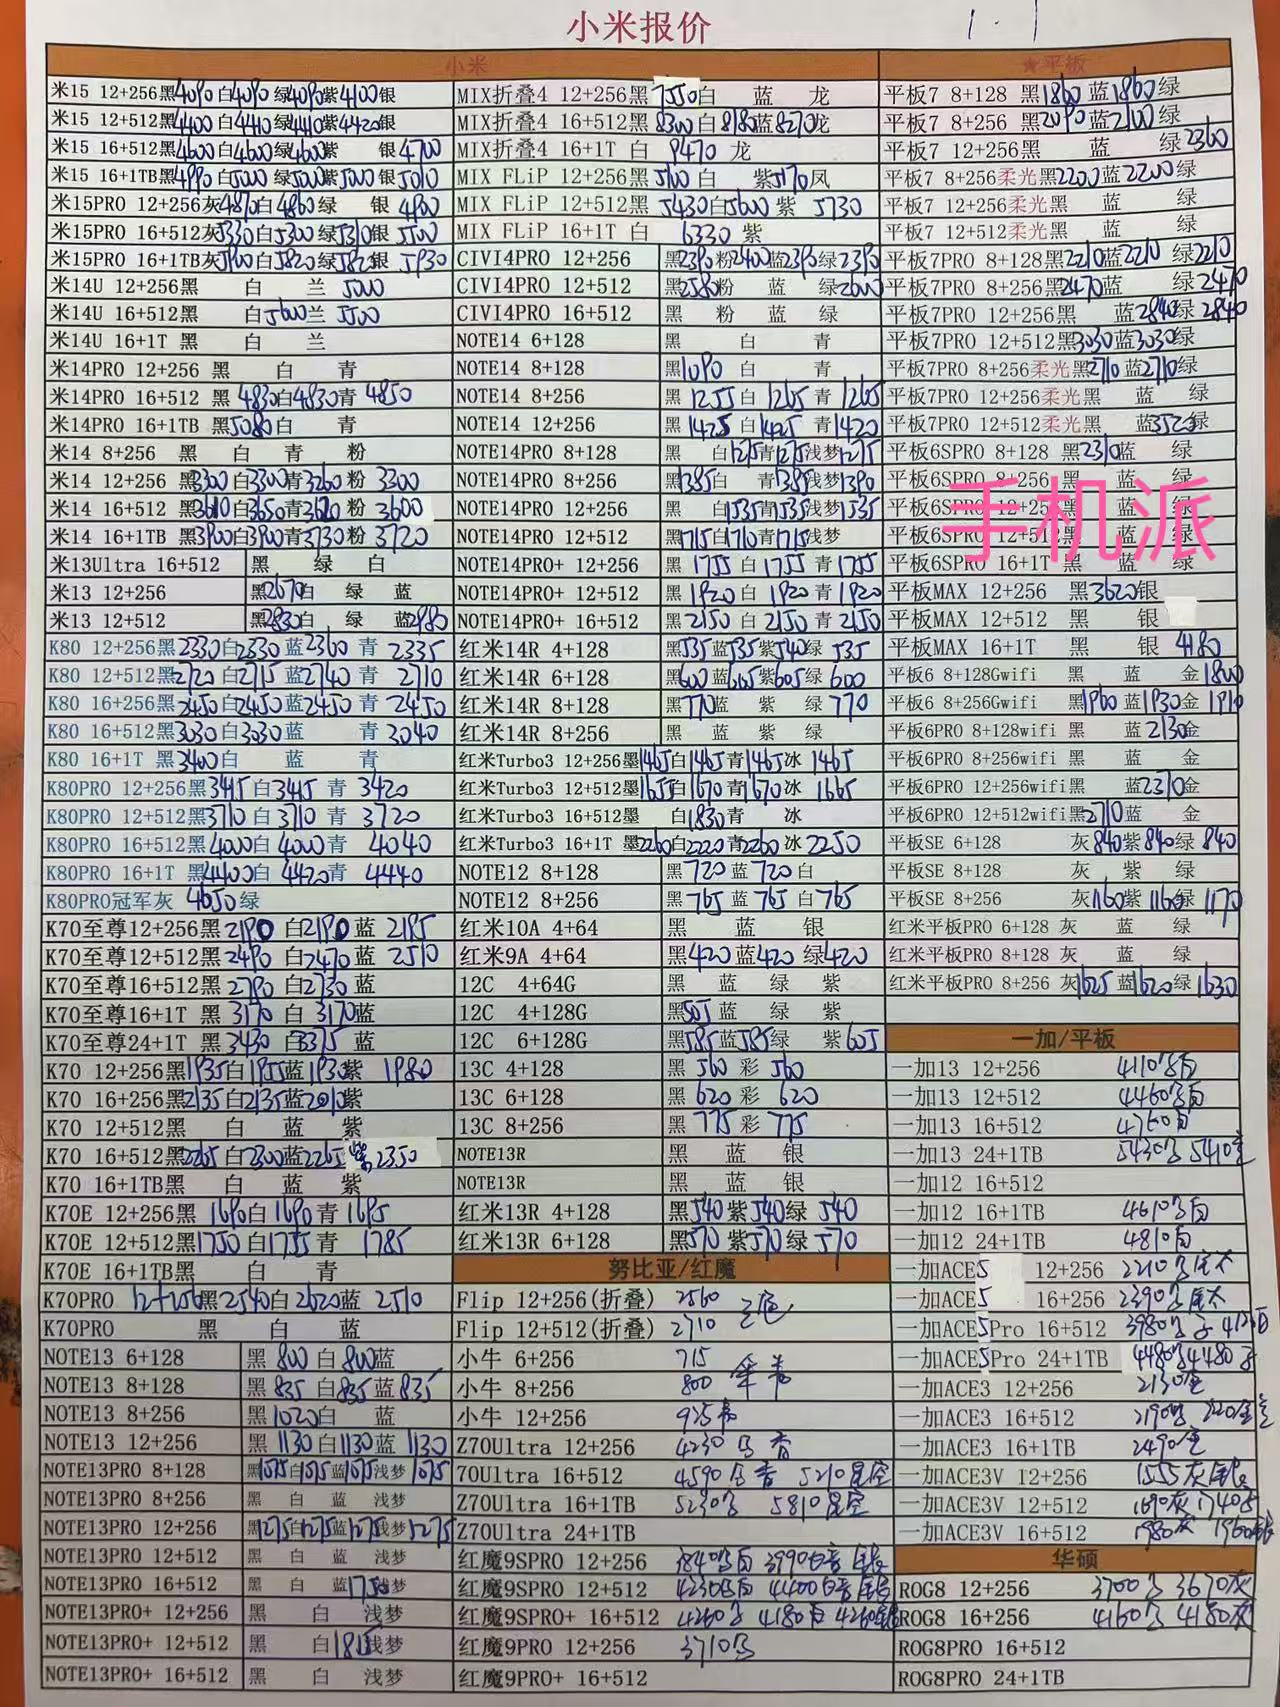 小米报价
1.1
小米
米15 12+256黑4090白4090绿4090紫4100银
米15 12+512黑4400白4410绿4410紫4420银
米15 16+512黑4600白4600绿4600紫 银4700
米15 16+1TB黑4990白5000绿5000紫5000银5010
米15PRO 12+256灰4870白4860绿 银4900
米15PRO 16+512灰5330白5300绿5310银5500
米15PRO 16+1TB灰5900白5820绿5820银5930
米14U 12+256黑 白 兰5000
米14U 16+512黑 白5600兰5500
米14U 16+1T 黑 白 兰
米14PRO 12+256 黑 白 青
米14PRO 16+512 黑4830白4830青4850
米14PRO 16+1TB 黑5080白 青
米14 8+256 黑 白 青 粉
米14 12+256 黑3300白3300青3260粉3300
米14 16+512 黑3610白3650青3620粉3600
米14 16+1TB 黑3900白3900青3730粉3720
米13Ultra 16+512 黑 绿 白
米13 12+256 黑2670白 绿 蓝
米13 12+512 黑2830白 绿 蓝2980
K80 12+256黑2330白2330蓝2360青2335
K80 12+512黑2720白2715蓝2740青2710
K80 16+256黑2450白2450蓝2450青2450
K80 16+512黑3030白3030蓝 青3040
K80 16+1T 黑3400白 蓝 青
K80PRO 12+256黑3415白3415青3420
K80PRO 12+512黑3710白3710青3720
K80PRO 16+512黑4000白4000青4040
K80PRO 16+1T 黑4400白4420青4440
K80PRO冠军灰 4650绿
K70至尊12+256黑2190白2190蓝2195
K70至尊12+512黑2490白2470蓝2510
K70至尊16+512黑2790白2730蓝
K70至尊16+1T 黑3170白3170蓝
K70至尊24+1T 黑3430白3375蓝
K70 12+256黑1935白1955蓝1930紫1980
K70 16+256黑2135白2135蓝2010紫
K70 12+512黑 白 蓝 紫
K70 16+512黑2265白2300蓝2265紫2350
K70 16+1TB黑 白 蓝 紫
K70E 12+256黑1690白1690青1695
K70E 12+512黑1750白1755青1785
K70E 16+1TB黑 白 青
K70PRO 12+256黑2540白2620蓝2510
K70PRO 黑 白 蓝
NOTE13 6+128 黑800白800蓝
NOTE13 8+128 黑835白835蓝835
NOTE13 8+256 黑1020白 蓝
NOTE13 12+256 黑1130白1130蓝1130
NOTE13PRO 8+128 黑1075白1075蓝1075浅梦1075
NOTE13PRO 8+256 黑 白 蓝 浅梦
NOTE13PRO 12+256 黑1275白1275蓝1275浅梦1275
NOTE13PRO 12+512 黑 白 蓝 浅梦
NOTE13PRO 16+512 黑 白 蓝1750浅梦
NOTE13PRO+ 12+256 黑 白 浅梦
NOTE13PRO+ 12+512 黑 白1815浅梦
NOTE13PRO+ 16+512 黑 白 浅梦
MIX折叠4 12+256黑7550白 蓝 龙
MIX折叠4 16+512黑8300白8180蓝8270龙
MIX折叠4 16+1T 白 9470 龙
MIX FLiP 12+256黑5100白 紫5170凤
MIX FLiP 12+512黑5430白5600紫5730
MIX FLiP 16+1T 白 6330 紫
CIVI4PRO 12+256 黑2390粉2400蓝2390绿2390
CIVI4PRO 12+512 黑2580粉 蓝 绿2600
CIVI4PRO 16+512 黑 粉 蓝 绿
NOTE14 6+128 黑 白 青
NOTE14 8+128 黑1090白 青
NOTE14 8+256 黑1255白1265青1265
NOTE14 12+256 黑1425白1425青1420
NOTE14PRO 8+128 黑 白1275青1275浅梦1275
NOTE14PRO 8+256 黑1385白 青1385浅梦1390
NOTE14PRO 12+256 黑 白1535青1535浅梦1535
NOTE14PRO 12+512 黑1715白1710青1715浅梦
NOTE14PRO+ 12+256 黑1755白1755青1755
NOTE14PRO+ 12+512 黑1920白1920青1920
NOTE14PRO+ 16+512 黑2150白2150青2150
红米14R 4+128 黑535蓝535紫540绿535
红米14R 6+128 黑600蓝605紫605绿600
红米14R 8+128 黑770蓝 紫 绿770
红米14R 8+256 黑 蓝 紫 绿
红米Turbo3 12+256墨1465白1465青1465冰1465
红米Turbo3 12+512墨1655白1670青1670冰1665
红米Turbo3 16+512墨 白1830青 冰
红米Turbo3 16+1T 墨2260白2220青2260冰2250
NOTE12 8+128 黑720蓝720白
NOTE12 8+256 黑765蓝765白765
红米10A 4+64 黑 蓝 银
红米9A 4+64 黑420蓝420绿420
12C 4+64G 黑 蓝 绿 紫
12C 4+128G 黑505蓝 绿 紫
12C 6+128G 黑585蓝585绿 紫605
13C 4+128 黑560彩560
13C 6+128 黑620彩620
13C 8+256 黑775彩775
NOTE13R 黑 蓝 银
NOTE13R 黑 蓝 银
红米13R 4+128 黑540紫540绿540
红米13R 6+128 黑570紫570绿570
努比亚/红魔
Flip 12+256(折叠) 2560 三色
Flip 12+512(折叠) 2710
小牛 6+256 715
小牛 8+256 800
小牛 12+256 925
Z70Ultra 12+256 4230
70Ultra 16+512 4590 5210星空
Z70Ultra 16+1TB 5230 5810星空
Z70Ultra 24+1TB
红魔9SPRO 12+256 3840 3990
红魔9SPRO 12+512 4230 4400
红魔9SPRO+ 16+512 4260 4180 4260
红魔9PRO 12+256 3710
红魔9PRO+ 16+512
★平板
平板7 8+128 黑1860蓝1860绿
平板7 8+256 黑2090蓝2100绿
平板7 12+256黑 蓝 绿2360
平板7 8+256柔光黑2200蓝2200绿
平板7 12+256柔光黑 蓝 绿
平板7 12+512柔光黑 蓝 绿
平板7PRO 8+128黑2210蓝2210绿2210
平板7PRO 8+256黑2470蓝 绿2470
平板7PRO 12+256黑 蓝2840绿2840
平板7PRO 12+512黑3030蓝3030绿
平板7PRO 8+256柔光黑2710蓝2710绿
平板7PRO 12+256柔光黑 蓝 绿
平板7PRO 12+512柔光黑 蓝3520绿
平板6SPRO 8+128 黑2310蓝 绿
平板6SPRO 8+256 黑 蓝 绿
平板6SPRO 12+256 黑 蓝 绿
平板6SPRO 12+512黑 蓝 绿
手机派
平板6SPRO 16+1T 黑 蓝 绿
平板MAX 12+256 黑3620银
平板MAX 12+512 黑 银
平板MAX 16+1T 黑 银4180
平板6 8+128Gwifi 黑 蓝 金1800
平板6 8+256Gwifi 黑1960蓝1930金1910
平板6PRO 8+128wifi 黑 蓝2130金
平板6PRO 8+256wifi 黑 蓝 金
平板6PRO 12+256wifi黑 蓝2370金
平板6PRO 12+512wifi黑2710蓝 金
平板SE 6+128 灰840紫840绿840
平板SE 8+128 灰 紫 绿
平板SE 8+256 灰1160紫1160绿1170
红米平板PRO 6+128 灰 蓝 绿
红米平板PRO 8+128 灰 蓝 绿
红米平板PRO 8+256 灰1625蓝1620绿1630
一加/平板
一加13 12+256 4110
一加13 12+512 4460
一加13 16+512 4760
一加13 24+1TB 5430 5410
一加12 16+512
一加12 16+1TB 4610
一加12 24+1TB 4810白
一加ACE5 12+256 2210
一加ACE5 16+256 2390
一加ACE5Pro 16+512 3980
一加ACE5Pro 24+1TB 4480 4480
一加ACE3 12+256 2130
一加ACE3 16+512 2190
一加ACE3 16+1TB 2490
一加ACE3V 12+256 1555灰
一加ACE3V 12+512 1690灰1740
一加ACE3V 16+512 1980灰 1960
华硕
ROG8 12+256 3700 3670灰
ROG8 16+256 4160 4180灰
ROG8PRO 16+512
ROG8PRO 24+1TB